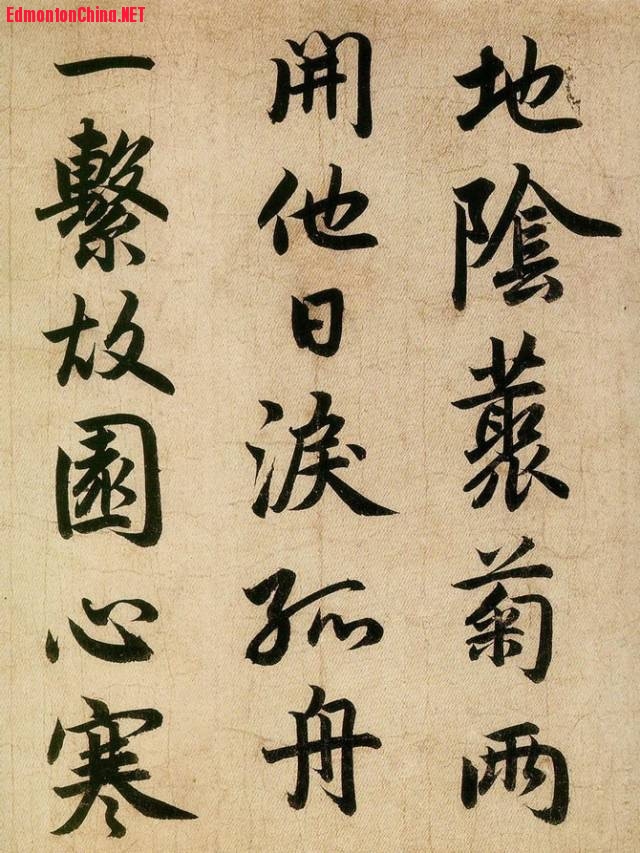 EdmontonChina.NET
地陰藂菊兩
開他日淚孤舟
一繫故園心寒